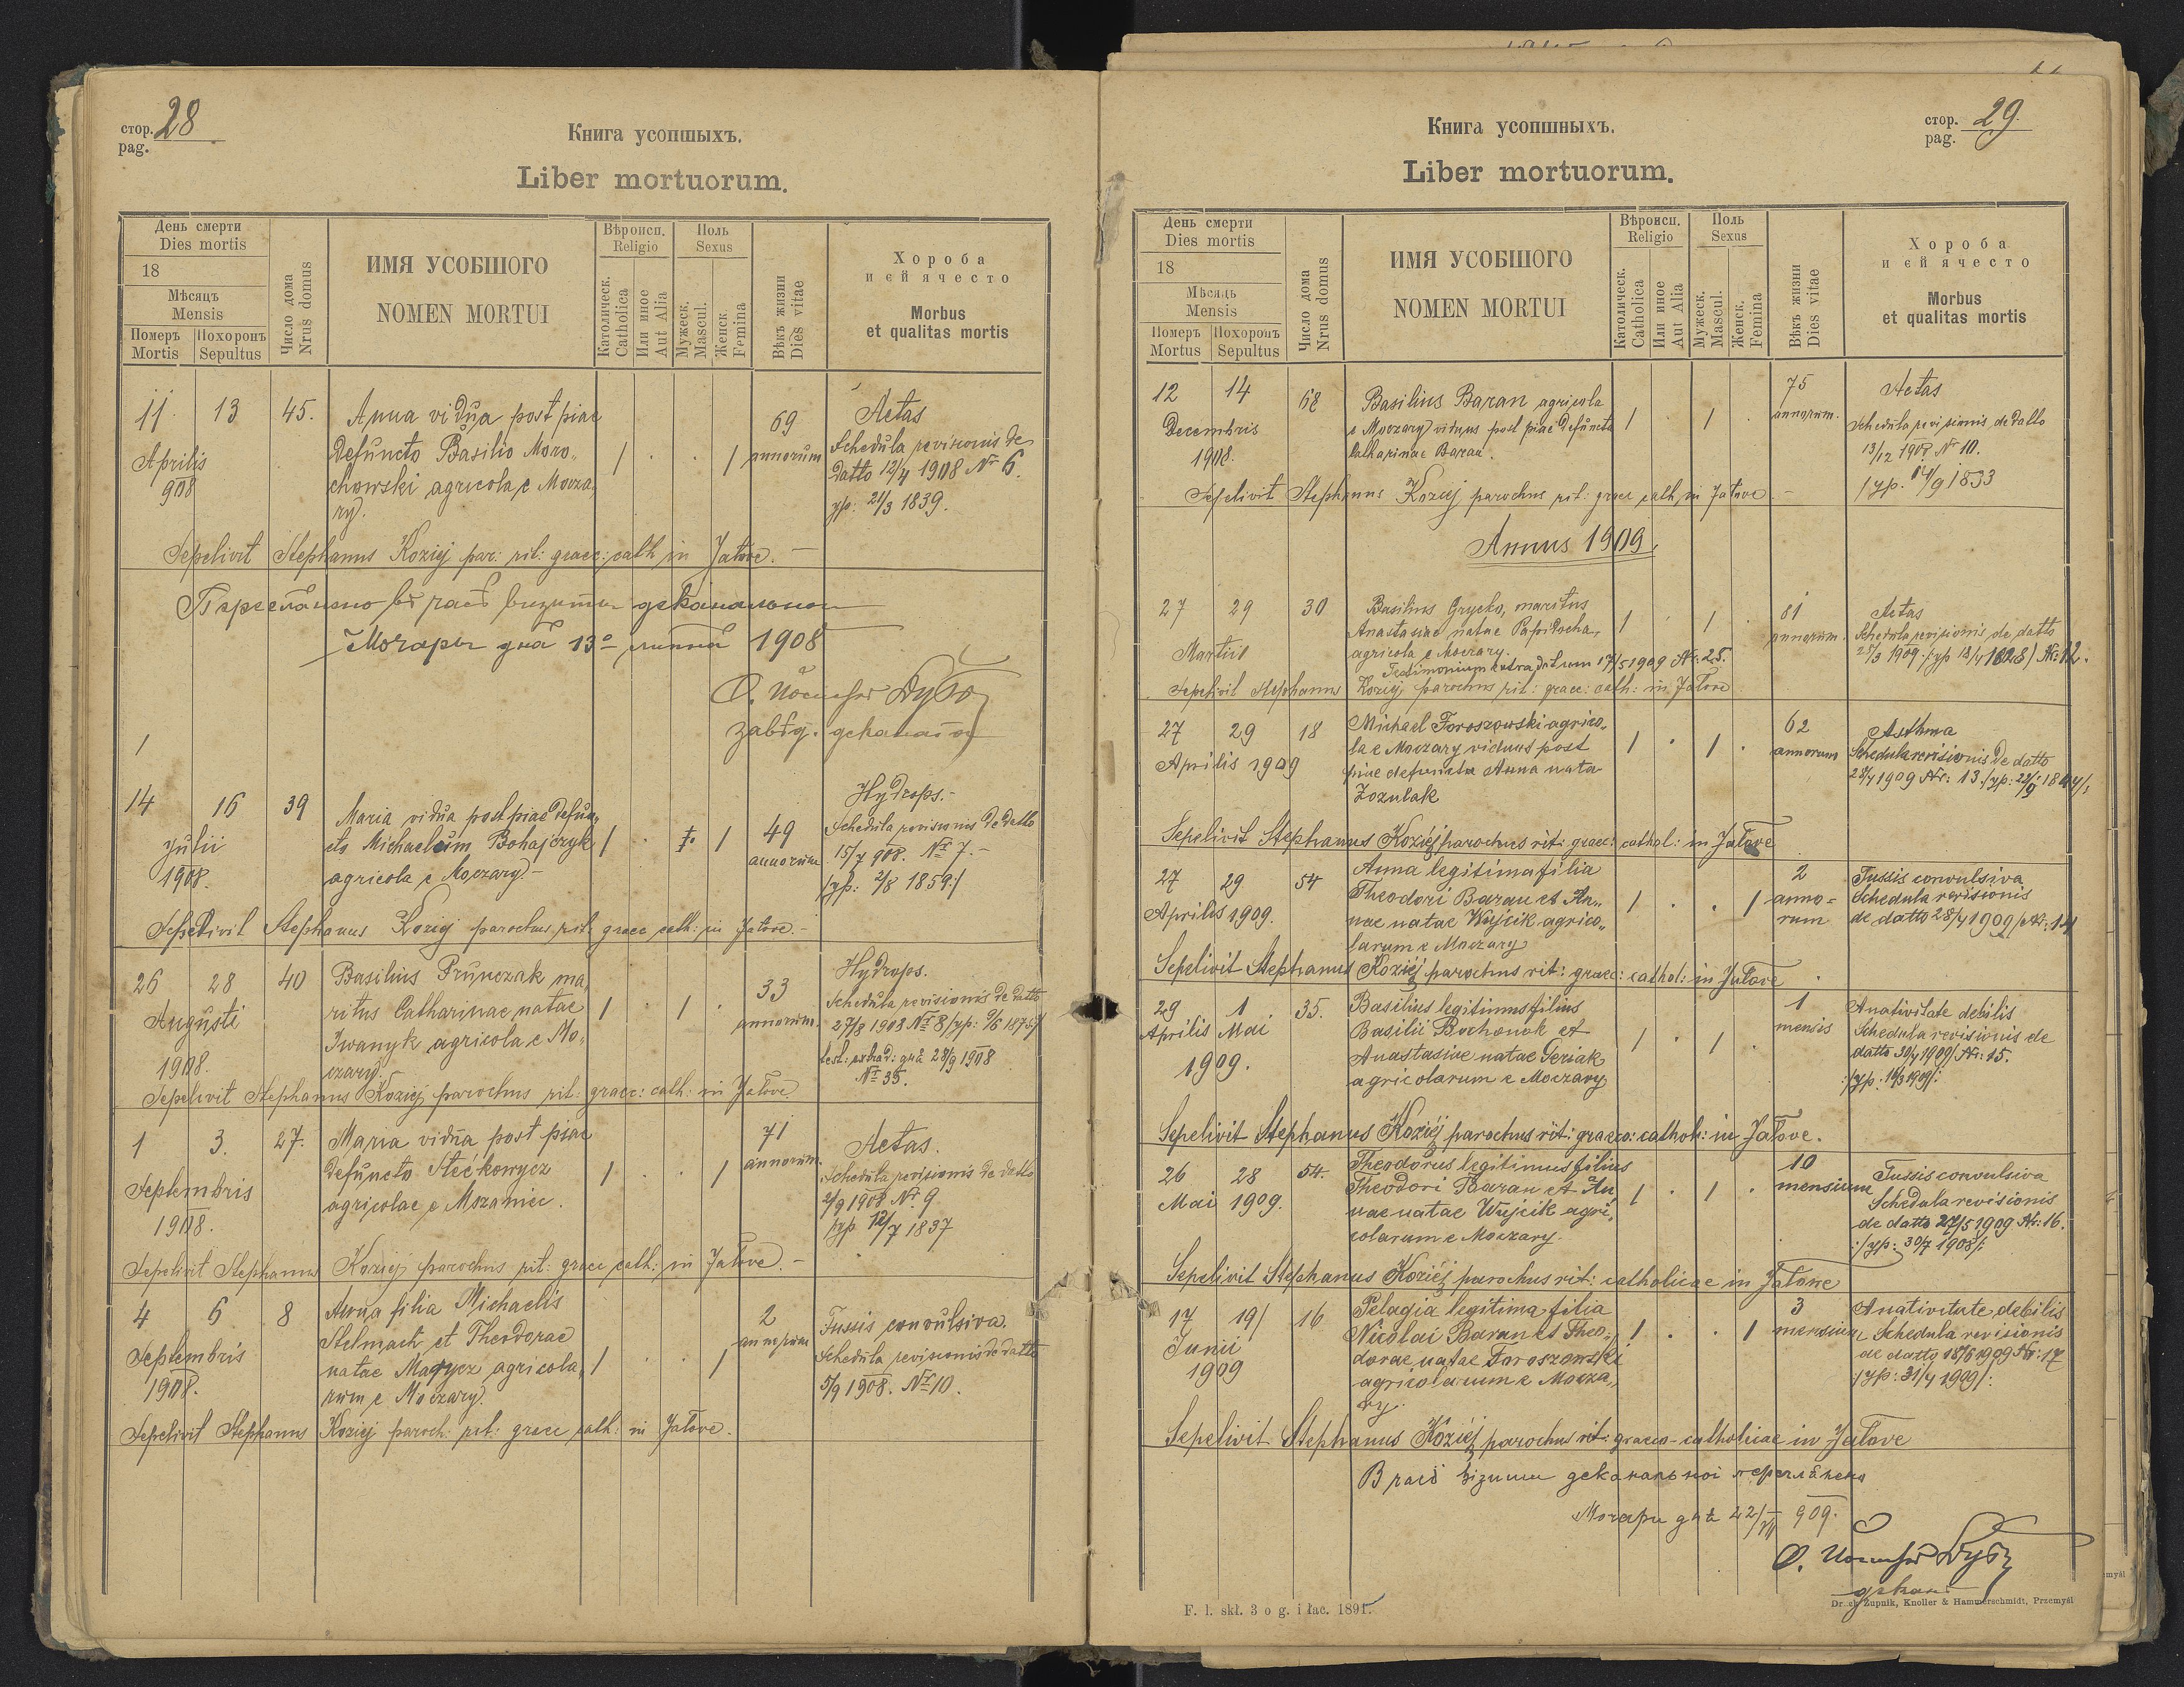 стор. 28
pag.
Книга усопшыхъ.
Liber mortuorum.
День смерти
Dies mortis
18
Мѣсяцъ
Mensis
Померъ Похоронъ
Mortis Sepultus
Число дома
Nrus domus
ИМЯ УСОБШОГО
NOMEN MORTUI
Вѣроисп.
Religio
Католическ.
Catholica
Или иное
Aut Alia
Поль
Sexus
Мужеск.
Mascul.
Женск.
Femina
Вѣкъ жизни
Dies vitae
Хороба
и єй ячесто
Morbus
et qualitas mortis
11 13 45. Anna vidua post piae 69 Aetas
Aprilis defuncto Basilio Moro„ / . . / annorum Schedula revisionis de
908 chowski agricola e Mocza„ datto 12/4 1908 Nr 6.
ry. yp: 21/3 1839.
Sepelivit Stephanus Koziej par: rit: graec: cath in Jałove. —
Мочары дна 13го липня 1908
14 16 39 Maria vidua post piae defun„ 49 Hydrops.-
Julii cto Michaelum Bohajczyk / . . / annorum Schedula revisionis de datto
1908. agricola e Moczary.- 15/7 908. Nr 7.-
/yp: 2/8 1859:/
Sepelivit Stephanus Koziej parochus rit: graec cath: in Jałove.-
26 28 40 Basilius Prunczak ma„ 33 Hydrops.
Augusti ritus Catharinae natae / . / . annorum. Schedula revisionis de datto
1908. Iwanyk agricola e Mo„ 27/8 1908 Nr 8 /yp: 9/6 1875/
czary. test: extrad: дна 28/9 1908
Nr 35.
Sepelivit Stephanus Koziej parochus rit: graec: cath: in Jałove
1 3. 27. Maria vidua post piae 71 Aetas.
Septembris defuncto Stećkowycz / . . / annorum. Schedula revisionis de datto
1908. agricolae e Mszaniec. 2/9 1908 Nr 9
yp 12/7 1837
Sepelivit Stephanus Koziej parochus rit: graec cath: in Jałove. -
4 6 8 Anna filia Michaelis 2 Tussis convulsiva.
Septembris Stelmach et Theodorae annorum Schedula revisionis de datto
1908. natae Magycz agricola„ / . . / 5/9 1908. Nr 10.
rum e Moczary.
Sepelivit Stephanus Koziej paroch: rit: graec cath: in Jałove.
стор. 29.
pag.
Книга усопшныхъ.
Liber mortuorum.
День смерти
Dies mortis
18
Мѣсяць
Mensis
Померъ Похоронъ
Mortus Sepultus
Число дома
Nrus domus
ИМЯ УСОБШОГО
NOMEN MORTUI
Вѣроисп.
Religio
Католическ.
Catholica
Или иное
Aut Alia
Поль
Sexus
Мужеск.
Mascul.
Женск.
Femina
Вѣкъ жизни
Dies vitae
Хороба
и єй ячесто
Morbus
et qualitas mortis
12 14 68 Basilius Baran agricola 75 Aetas
Decembris e Moczary viduus post piae defuncta / . / . annorum. Schedula revisionis de datto
1908. Catharinae Baran. 13/12 1908 Nr 10.
/yp. 14/9 1833
Sepelivit Stephanus Koziej parochus rit: graec cath, in Jałove. -
Annus 1909.
27 29 30 Basilius Grycko, maritus 81 Aetas
Martii Anastasiae natae / . / . annorum. Schedula revisionis de datto
agricola e Moczary. 28/3 1909. /yp 18/4 1828/ Nr: 12.
Testimonium extradatum 17/5 1909 Nr: 25.
Sepelivit Stephanus Koziej parochus rit: graec: cath: in Jałove
27 29 18 Michael Toroszowski agrico„ 62 Asthma
Aprilis 1909 la e Moczary viduus post / . / . annorum Schedula revisionis de datto
piae defuncta Anna nata 28/4 1909 Nr: 13.
Zozulak
Sepelivit Stephanus Koziéj parochus rit: graec: cathol: in Jałove
27 29 54 Anna legitima filia 2 Tussis convulsiva
Aprilis 1909. Theodori Baran et An„ / . . / anno= Schedula revisionis
nae natae Wujcik agrico„ rum de datto 28/4 1909 /Nr: 14/
larum e Moczary
Sepelivit Stephanus Koziéj parochus rit: graec: cathol: in Jałove
29 1 35. Basilius legitimus filius 1 A nativitate debilis
Aprilis Mai Basilii Bochonok et / . / . mensis Schedula revisionis de
1909. Anastasiae natae Feriak datto 30/4 1909/ Nr: 15.
agricolarum e Moczary :/yp: 19/3 1909/:
Sepelivit Stephanus Koziéj parochus rit: graeco: cathol: in Jałove.
26 28 54. Theodorus legitimus filius 10 Tussis convulsiva
Mai 1909. Theodori Baran et An„ / . / . mensium Schedula revisionis
nae natae Wujcik agri„ de datto 27/5 1909 Nr: 16.
colarum e Moczary. :/yp: 30/7 1908/:
Sepelivit Stephanus Koziéj parochus rit: catholicae in Jałove
17 19/ 16 Pelagia legitima filia 3 A nativitate debilis
Junii Nicolai Baran et Theo„ / . . / mensium Schedula revisionis
1909 dorae natae Toroszowski de datto 18/6 1909 Nr: 17
agricolarum e Mocza„ /yp: 31/4 1909/:
ry.
Sepelivit Stephanus Koziéj parochus rit: graeco-catholicae in Jałove
В часі візити деканальної переглянено
Мочари дня 22/VII 909.
декан
F. l. skł. 3 o g. i łac. 1891.
Dr. Żupnik, Knoller & Hammerschmidt, Przemyśl